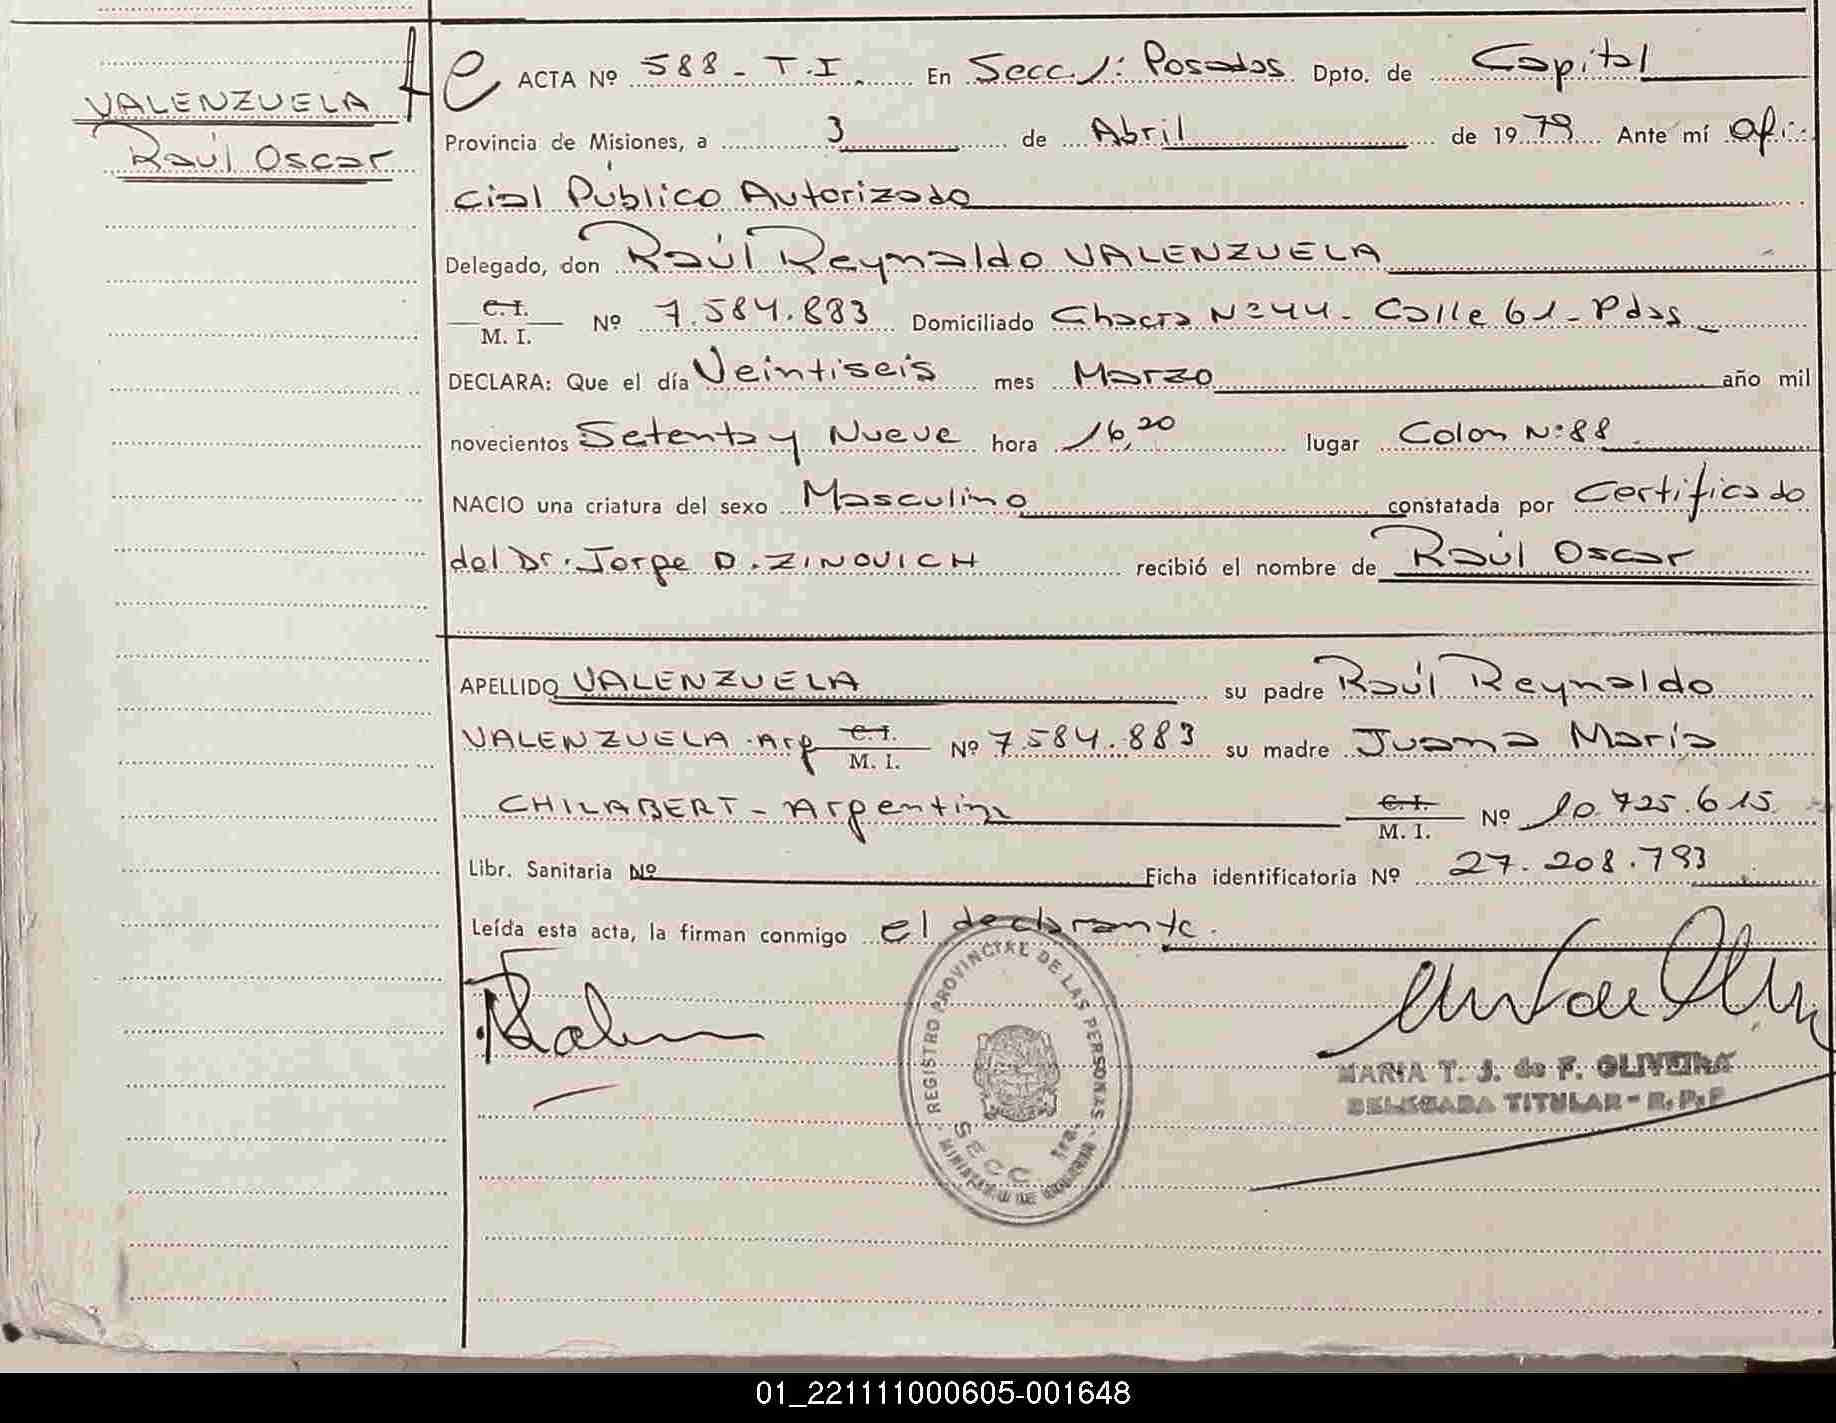 VALENZUELA
Raúl Oscar
ACTA Nº 588 - T.I. En Secc. 1: Posadas Dpto. de Capital
Provincia de Misiones, a 3 de Abril de 1979 Ante mí Ofi-
cial Público Autorizado
Delegado, don Raúl Reynaldo VALENZUELA
C.I.
M. I. Nº 7.584.883 Domiciliado Chacra Nº 44 - Calle 61 - Pdas
DECLARA: Que el día Veintiseis mes Marzo año mil
novecientos Setenta y Nueve hora 16,20 lugar Colon Nº 88
NACIO una criatura del sexo Masculino constatada por Certificado
del Dr. Jorge D. ZINOVICH recibió el nombre de Raúl Oscar
APELLIDO VALENZUELA su padre Raúl Reynaldo
VALENZUELA - Arg C.I. M. I. Nº 7.584.883 su madre Juana María
CHILABERT - Argentina C.I. M. I. Nº 10.725.615
Libr. Sanitaria Nº Ficha identificatoria Nº 27.208.793
Leída esta acta, la firman conmigo el declarante.
REGISTRO PROVINCIAL DE LAS PERSONAS
SECC 1ra.
MINISTERIO DE GOBIERNO
MARIA T. J. de F. OLIVEIRA
DELEGADA TITULAR - R. P. P
01_221111000605-001648